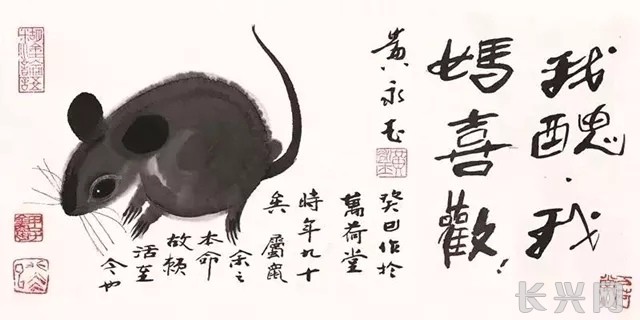 我醜，我
媽喜歡！
黄永玉
癸巳作於
萬荷堂
時年九十
矣 屬鼠
余之
本命
故賴
活至
今也
长兴网